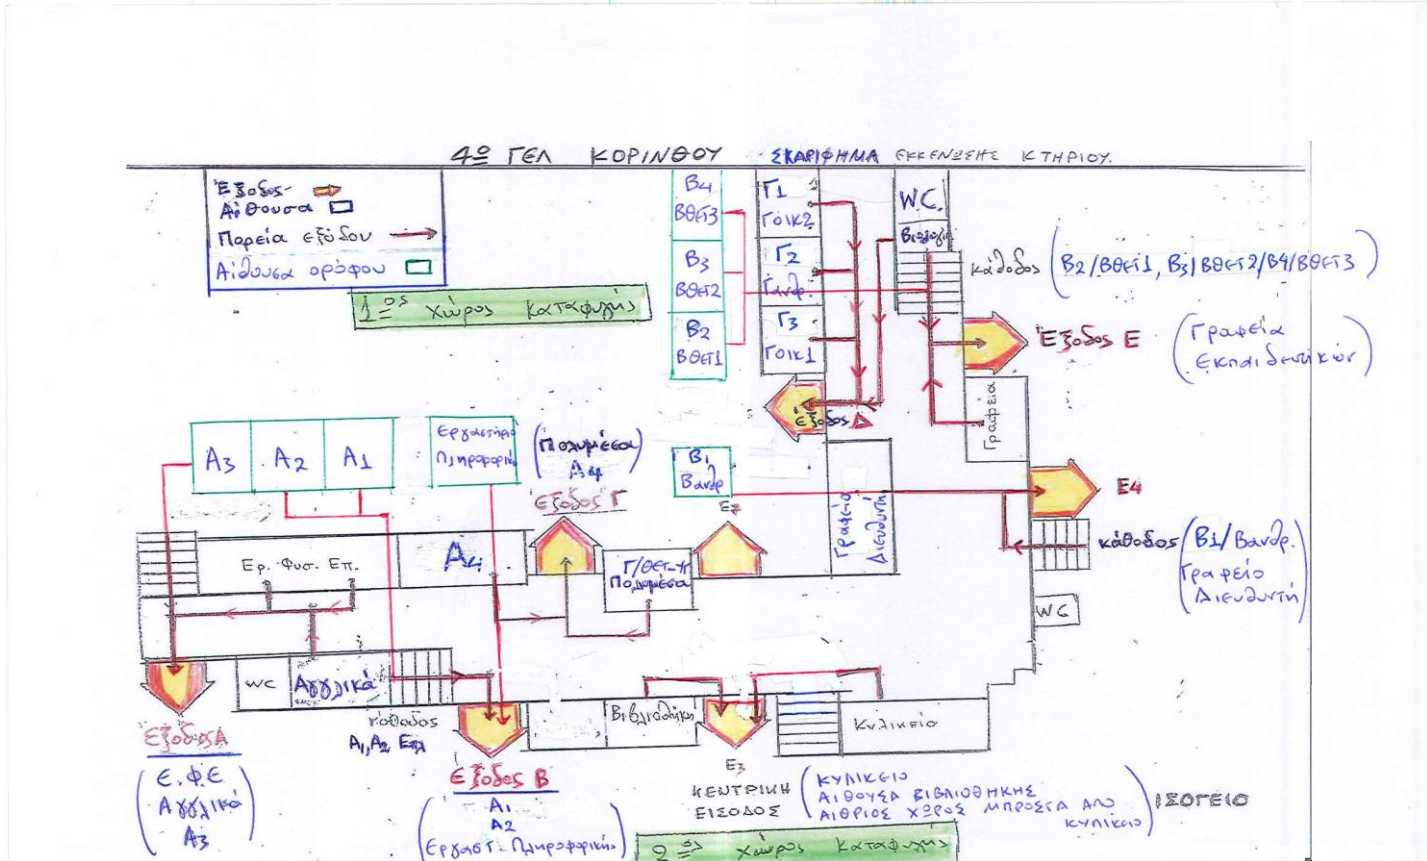 4ο ΓΕΛ ΚΟΡΙΝΘΟΥ ΣΚΑΡΙΦΗΜΑ ΕΚΚΕΝΩΣΗΣ ΚΤΗΡΙΟΥ.
Έξοδος
Αίθουσα
Πορεία εξόδου
Αίθουσα ορόφου
1ος χώρος καταφυγής
Β4
ΒΘΕΤ3
Β3
ΒΘΕΤ2
Β2
ΒΘΕΤ1
Γ1
Γοικ2
Γ2
Γανθρ.
Γ3
Γοικ1
W.C.
κάθοδος (Β2/ΒΘΕΤ1, Β3/ΒΘΕΤ2/Β4/ΒΘΕΤ3)
Έξοδος Ε
(Γραφεία
Εκπαιδευτικών)
Γραφεία
Έξοδος Δ
Α3 Α2 Α1
Εργαστήριο
Πληροφορική
(Πολυμέσα
Α4)
Έξοδος Γ
Β1
Βανθρ
Ε7
Γραφείο
Διευθυντή
Ε4
κάθοδος (Β1/Βανθρ.
Γραφείο
Διευθυντή)
WC
Ερ. Φυσ. Επ.
Α4
Πολυμέσα
WC
Αγγλικά
κάθοδος
Α1, Α2
Βιβλιοθήκη
Κυλικείο
Έξοδος Α
(Ε.Φ.Ε
Αγγλικά
Α3)
Έξοδος Β
(Α1
Α2
Εργαστ. Πληροφορικής)
Ε3
ΚΕΝΤΡΙΚΗ
ΕΙΣΟΔΟΣ
(ΚΥΛΙΚΕΙΟ
ΑΙΘΟΥΣΑ ΒΙΒΛΙΟΘΗΚΗΣ
ΑΙΘΡΙΟΣ ΧΩΡΟΣ ΜΠΡΟΣΤΑ ΑΠΟ
ΚΥΛΙΚΕΙΟ)
ΙΣΟΓΕΙΟ
2ος χώρος καταφυγής